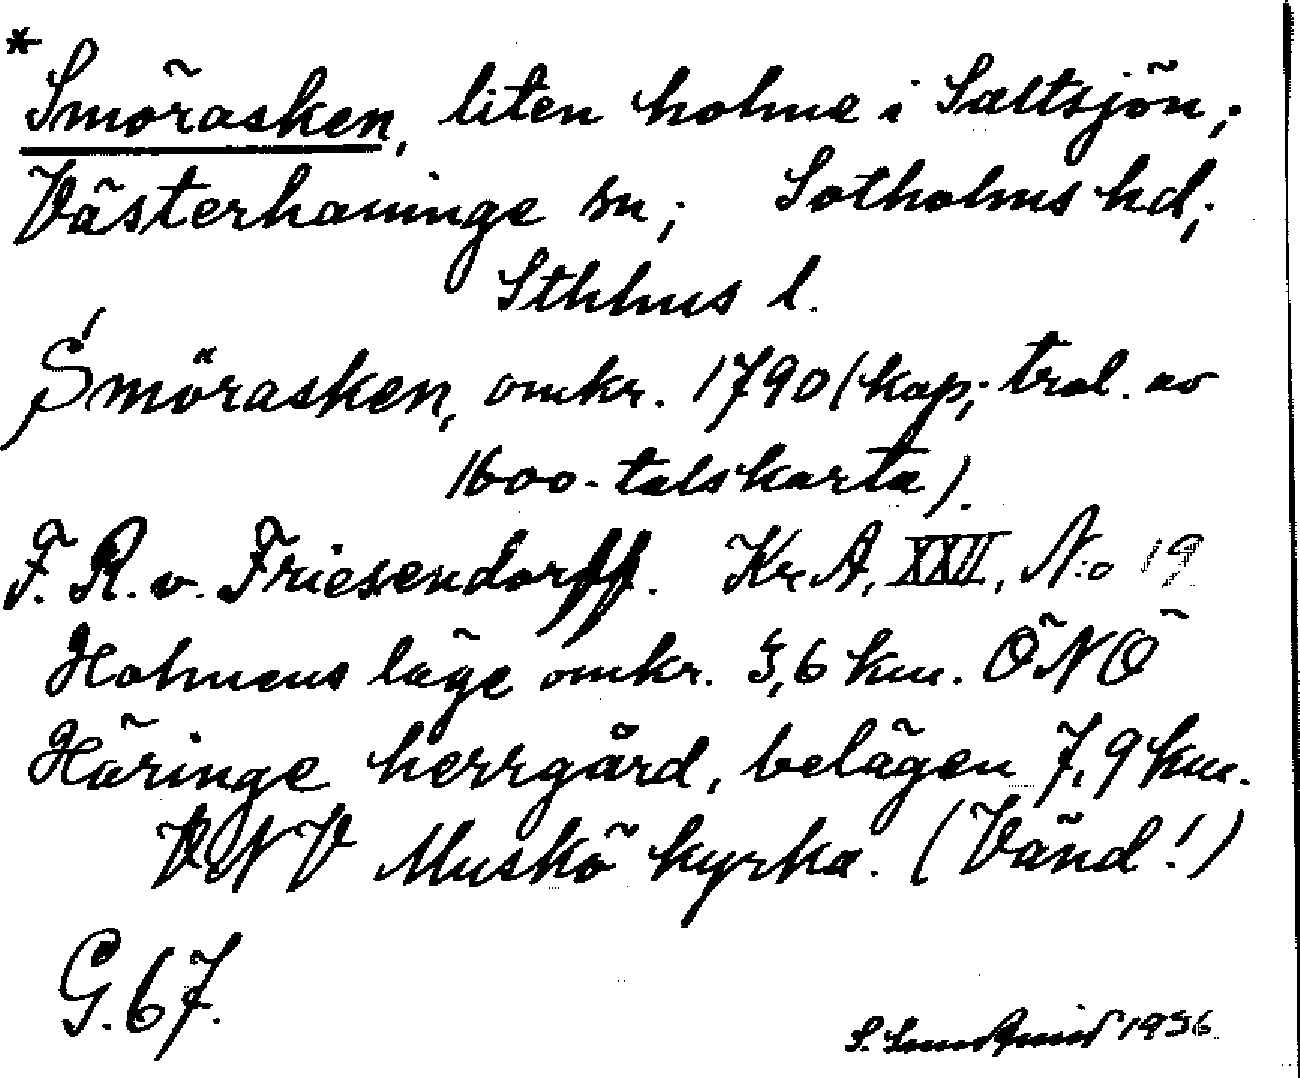 *
Smörasken, liten holme i Saltsjön;
Västerhaninge sn; Sotholms hd;
Sthlms l.
Smörasken, omkr. 1790 (kop; trol. av
1600-talskarta).
F. R. v. Friesendorff. Kr. A, XXII, N:o 19
Holmens läge omkr. 3,6 km. ÖNÖ
Häringe herrgård, belägen 7,9 km.
VNV Muskö kyrka. (Vänd!)
G. 67.
S. 1936